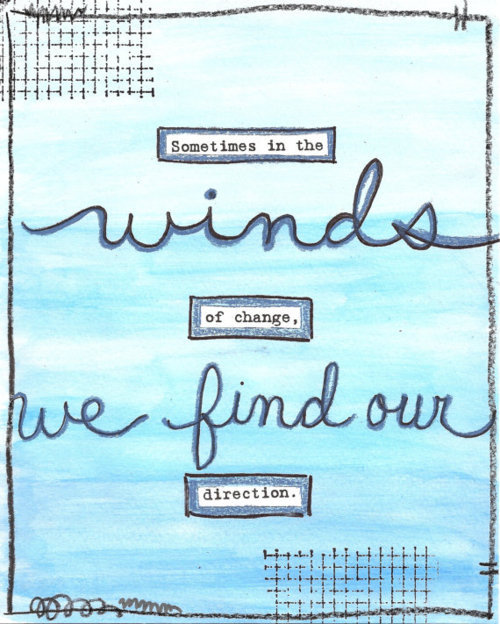 Sometimes in the
winds
of change,
we find our
direction.